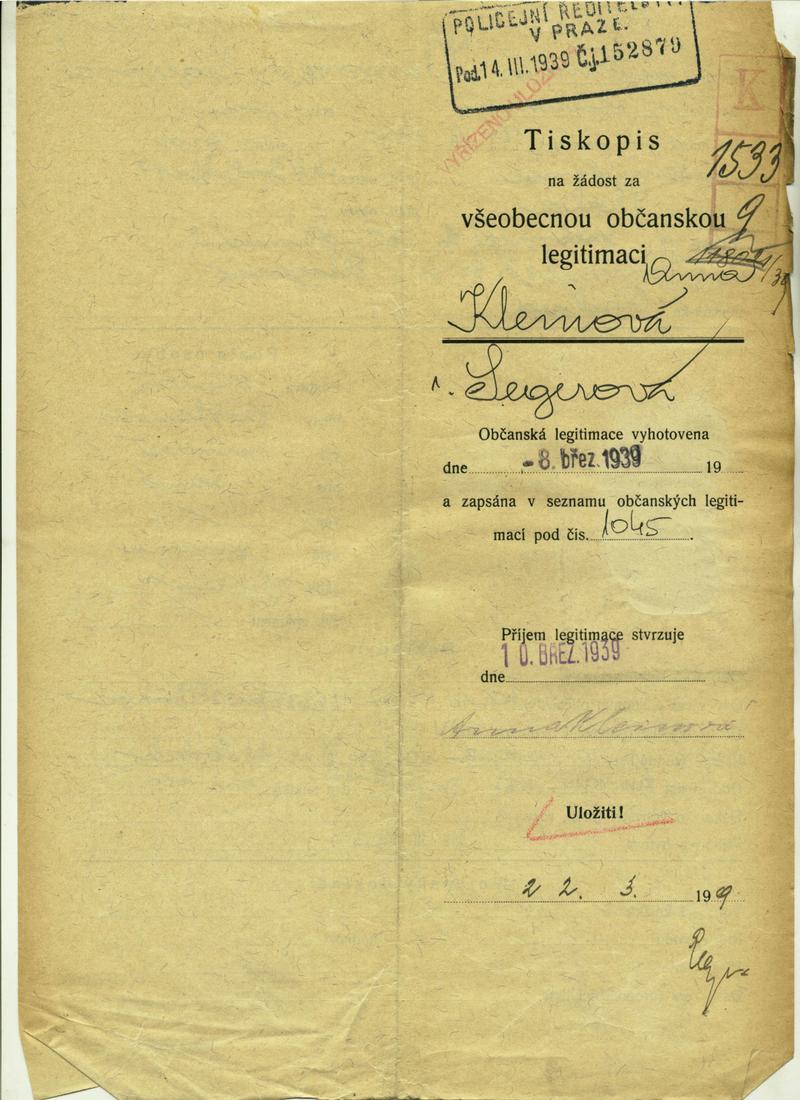 POLICEJNÍ ŘEDITELSTVÍ
V PRAZE.
Pod. 14. III. 1939 Č.j. 152879
VYŘÍZENO ULOŽ
K
Tiskopis
1533
na žádost za
všeobecnou občanskou 9
legitimaci
Anna
Kleinová
r. Segerová
Občanská legitimace vyhotovena
dne - 8. břez. 1939 19
a zapsána v seznamu občanských legiti-
mací pod čís. 1045.
Příjem legitimace stvrzuje
10. BŘEZ. 1939
dne
Anna Kleinová
Uložiti!
22. 3. 199